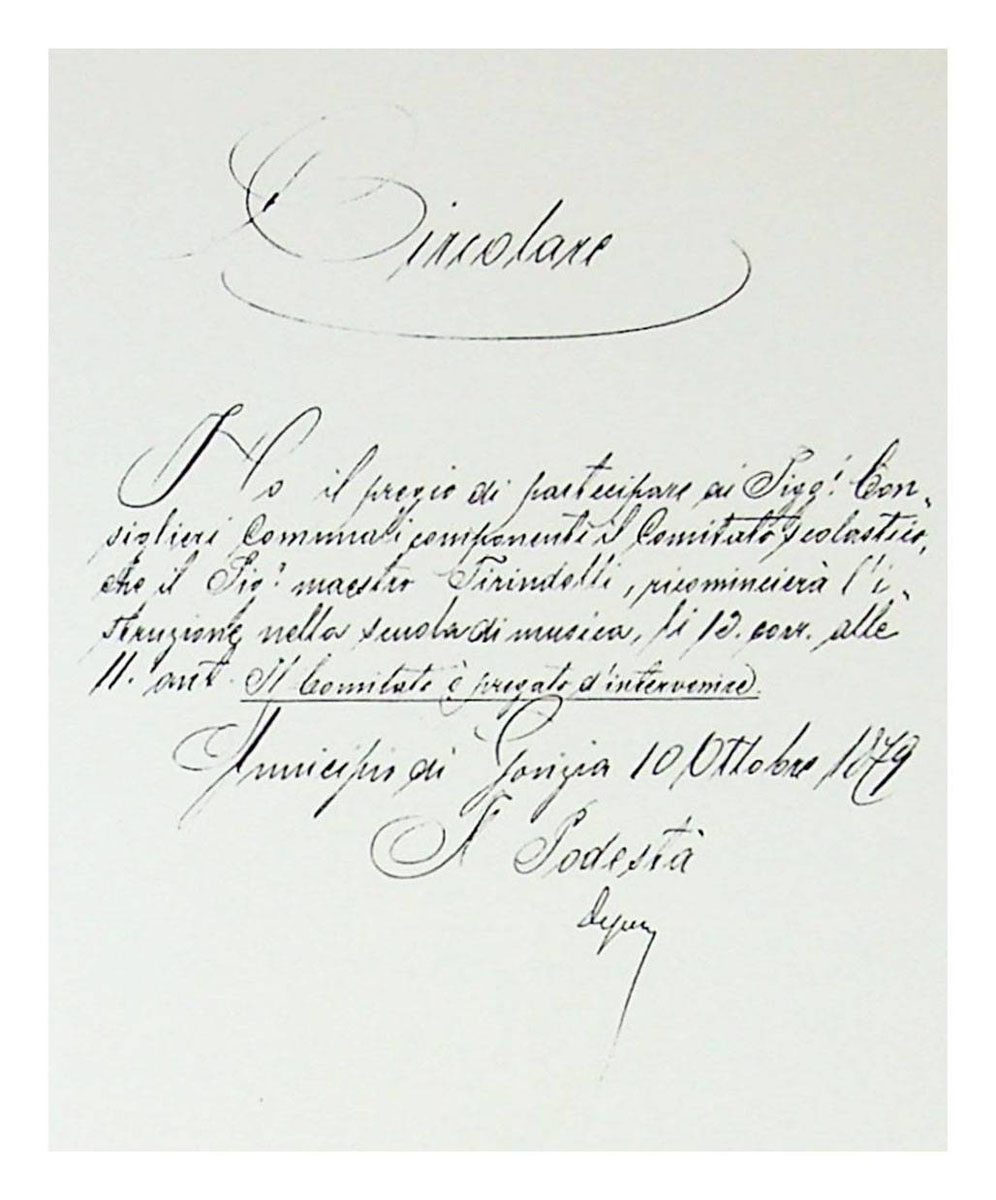 Circolare
Ho il pregio di partecipare ai Sigg.ⁱ Con-
siglieri Comunali componenti il Comitato scolastico,
che il Sig.ʳ maestro Tirindelli, ricomincierà l'i-
struzione nella scuola di musica, li 13. corr. alle
11. ant. Il Comitato è pregato d'intervenire.
Municipio di Gorizia 10 Ottobre 1879
Il Podestà